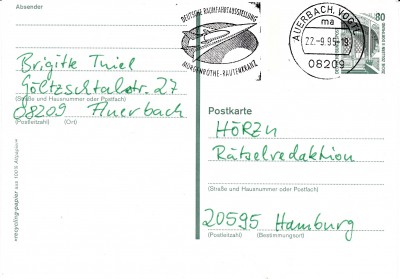 Absender
Brigitte Thiel
Göltzschtalstr. 27
(Straße und Hausnummer oder Postfach)
08209 Auerbach
(Postleitzahl) (Ort)
»recycling-papier aus 100% Altpapier«
DEUTSCHE RAUMFAHRTAUSSTELLUNG
MORGENRÖTHE-RAUTENKRANZ
AUERBACH, VOGTL
ma
22.-9.95-18
08209
80
Postkarte
HÖRZU
Rätselredaktion
(Straße und Hausnummer oder Postfach)
20595 Hamburg
(Postleitzahl) (Bestimmungsort)